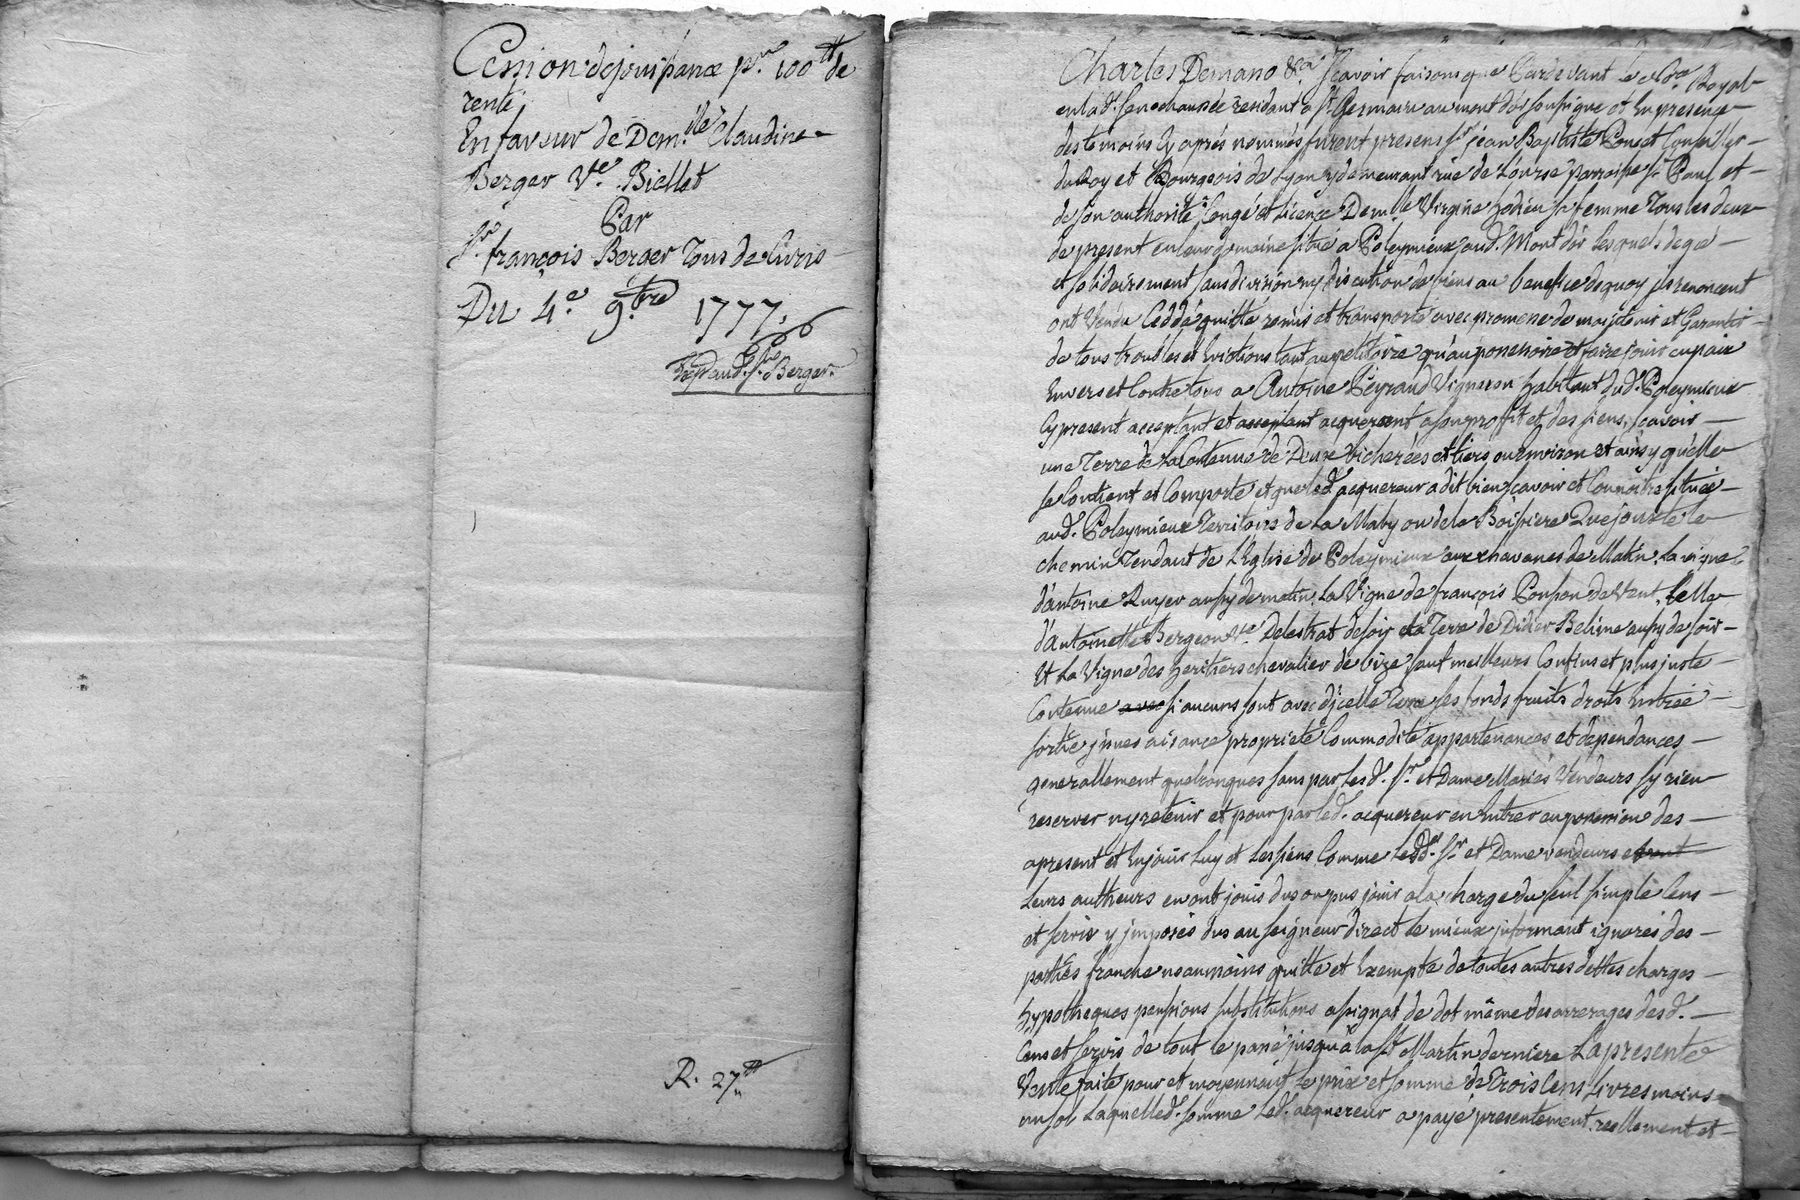 Cession de jouissance pr. 100tt de
rente
En faveur de Demlle. Claudine
Berger Ve. Biellet
Par
Sr. françois Berger Tous de Curis
Du 4e. 9bre 1777.
Sr. Berger.
R. 27tt
Charles Demano &ca Scavoir faisons que Pardevant le Nore Royal
en lad. senechaussée residant a St. Germain au mont d'or soussigné et En presence
des temoins Cy aprés nommés furent presens sr. jean Baptiste Conseiller
du Roy et Bourgeois de Lyon y demeurant rüe de L'ourse parroisse st. Paul et
de son authorité Congé et Licence Demlle Virginie sa femme Tous les deux
de present en leur domaine situé a Poleymieux aud. Mont d'or Lesquels de gré
et solidairement sans division ny discution de biens au benefice dequoy ils renoncent
ont Vendu Ceddé quitté remis et transporté avec promesse de maintenir et Garantir
de tous troubles et Evictions tant au petitoire qu'au possessoire et faire jouir en paix
Envers et Contre tous a Antoine Peyrand Vigneron habitant dud. Poleymieux
Cy present acceptant et acceptant acquerant a son proffit et des siens, scavoir
une Terre de La Contenue de Deux bicherées et tiers ou Environ et ainsy qu'elle
se Contient et Comporte et que led. acquereur a dit bien scavoir et Connoitre située
aud. Poleymieux Territoire de La Maby ou de la Boissiere Que jouxte le
chemin Tendant de L'Eglise de Poleymieux aux chavanes de Matin, La vigne
d'antoine Ruyer aussy de matin, La Vigne de françois Ponson de Vent, Celle
d'Antoinette Bergeon ve. Delestrat de soir et la Terre de Didier Belime aussy de soir
Et La Vigne des heritiers chevalier de bize sauf meilleurs Confins et plus juste
Contenue avec si aucuns sont avec d'icelle Terre ses fonds fruits droits Entrée
sortie jssues aisance proprieté Commodité appartenances et dependances
generallement quelconques sans par Lesd. sr. et Dame Mariés Vendeurs s'y rien
reserver ny retenir et pour par led. acquereur en Entrer en possession des
apresent et En jouir Luy et Les siens Comme Lesd. sr. et Dame vendeurs et
Leurs autheurs en ont joui du ou pus jouir a la charge du seul simple Cens
et servis y jmposés dus au seigneur direct le mieux jnformant ignorés des
parties franche neanmoins quitte et Exempte de toutes autres dettes charges
hypotheques pensions substitutions assignat de dot même des arrerages desd.
Cens et servis de tout le passé jusqu'à la st. Martin derniere La presente
Vente faite pour et moyennant Le prix et somme de Trois Cens Livres moins
un sol Laquelle d. somme Led. acquereur a payé presentement reellement et